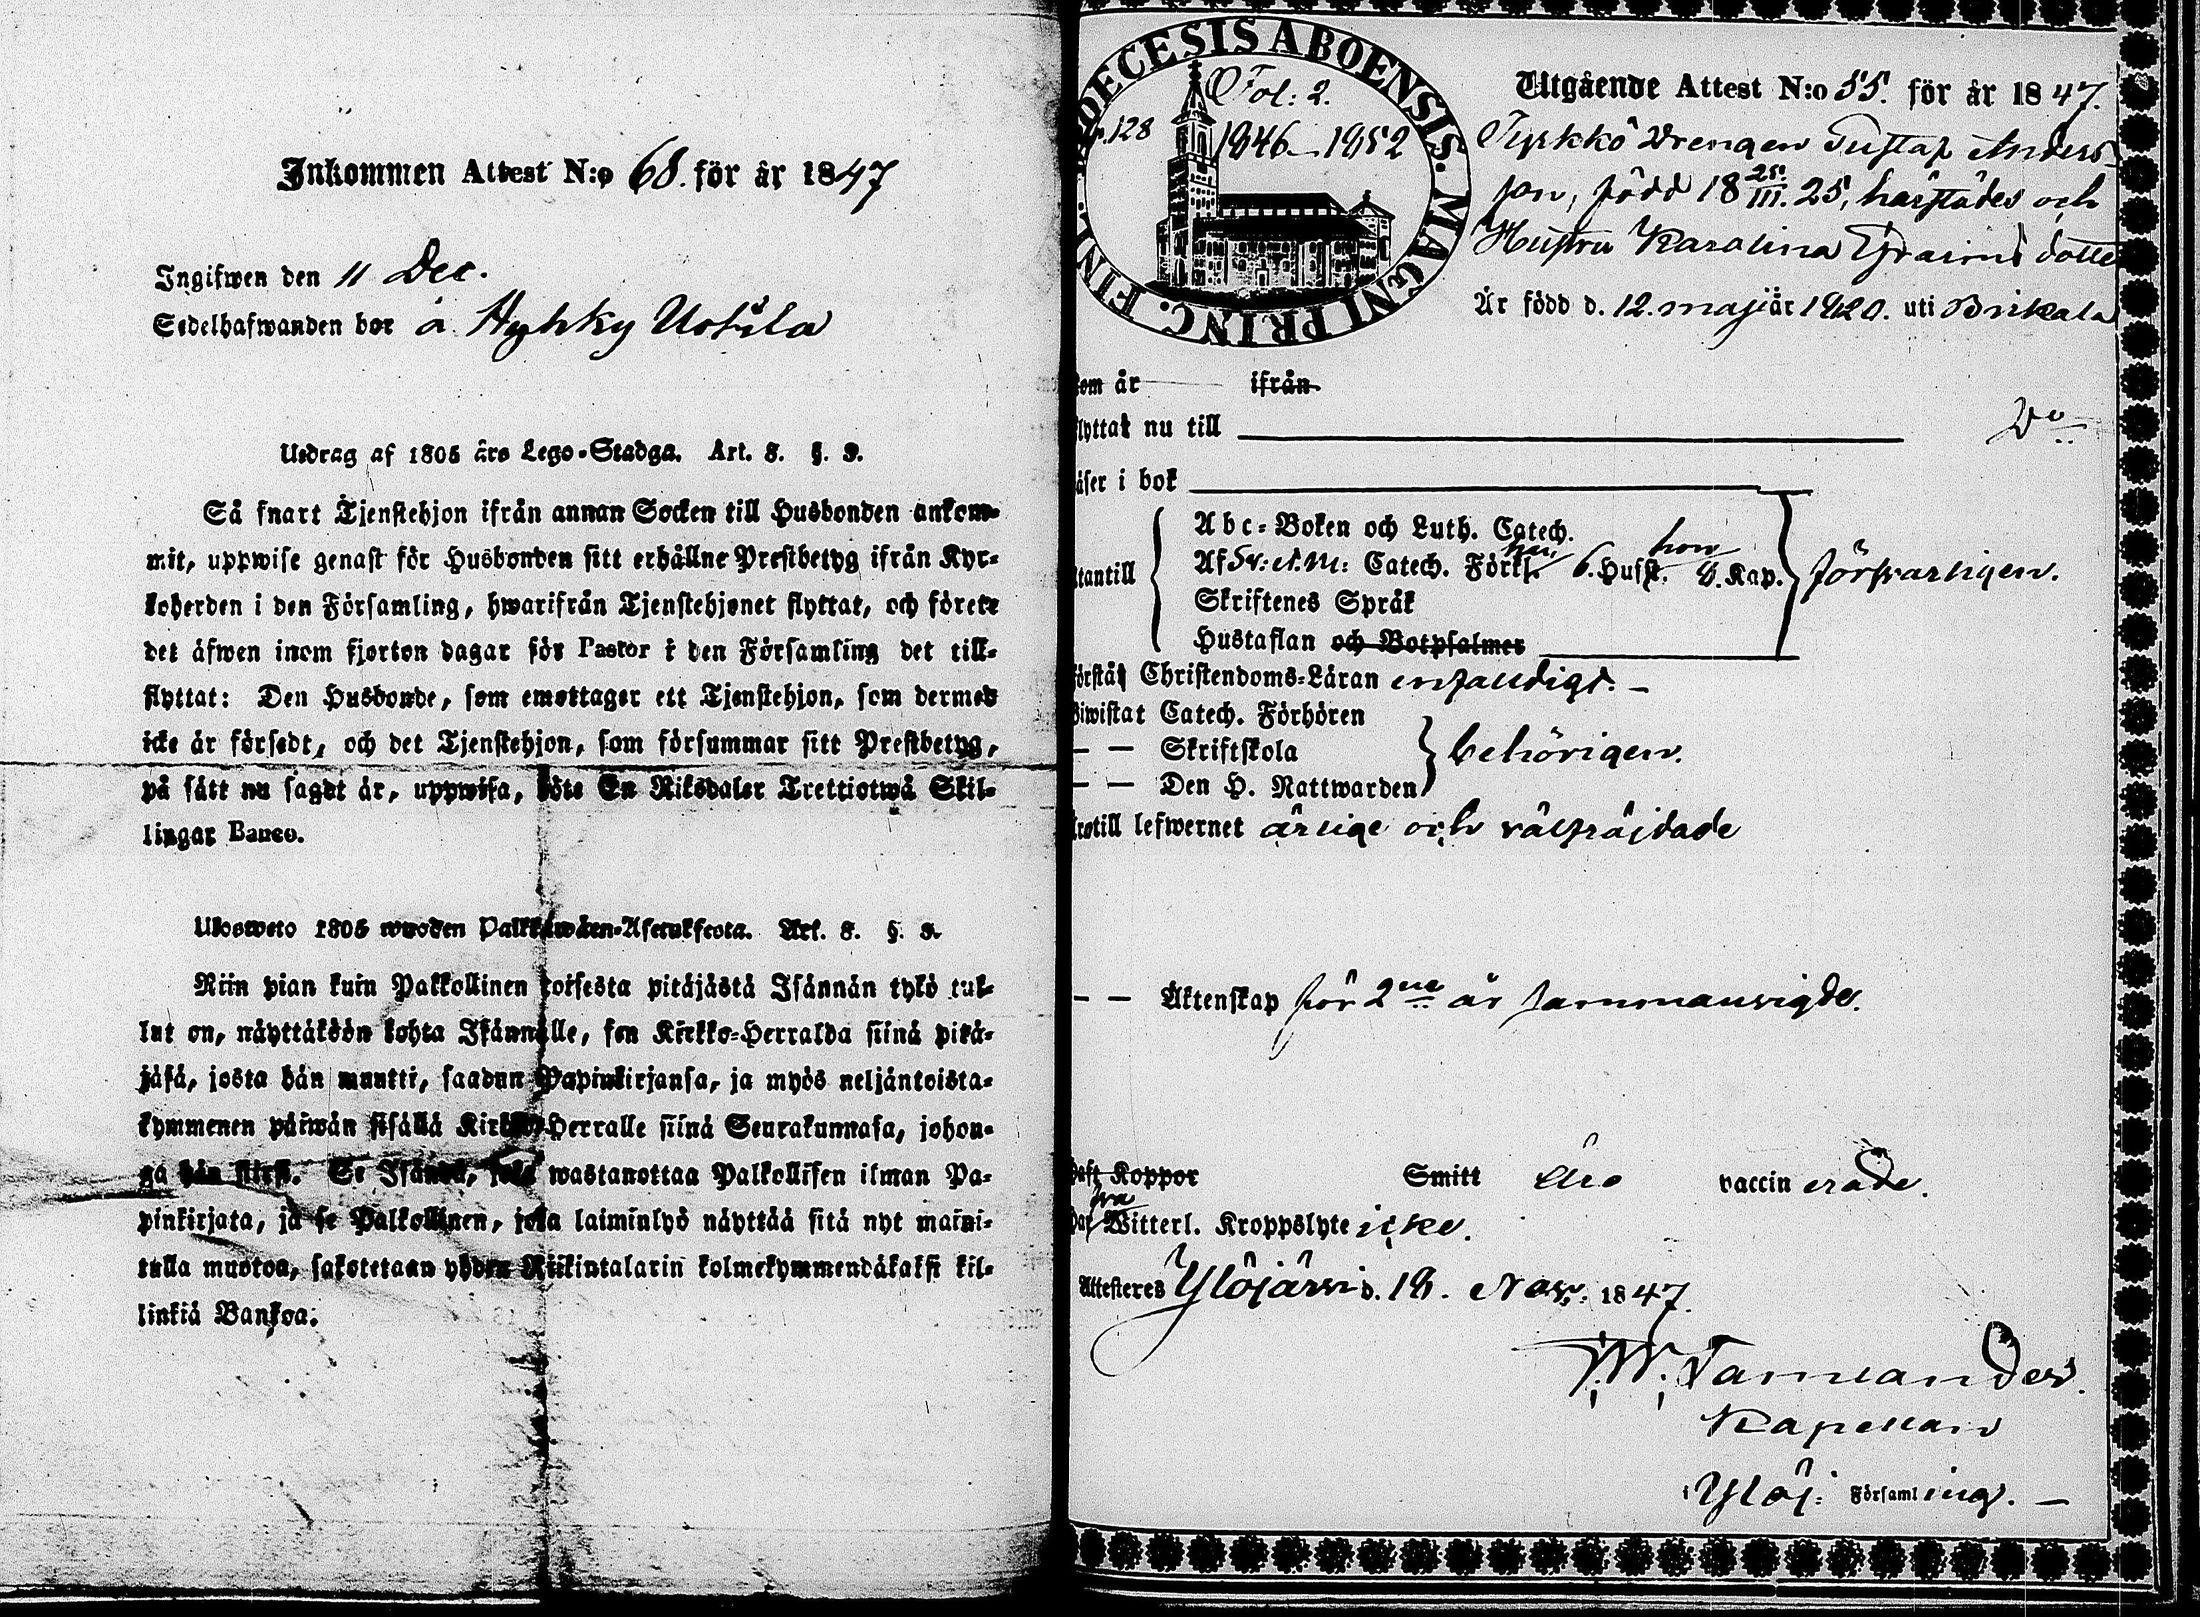 Inkommen Attest N:o 68. för år 1847
Ingifwen den 11 Dec.
Sedelhafwanden bor å Hyhky Uotila
Utdrag af 1805 års Lego-Stadga. Art. 8. §. 9.
Så snart Tjenstehjon ifrån annan Socken till Husbonden ankom-
mit, uppwise genast för Husbonden sitt erhållne Prestbetyg ifrån Kyr-
koherden i den Församling, hwarifrån Tjenstehjonet flyttat, och förete
det äfwen inom fjorton dagar för Pastor i den Församling det till-
flyttat: Den Husbonde, som emottager ett Tjenstehjon, som dermed
icke är försedt, och det Tjenstehjon, som försummar sitt Prestbetyg,
på sätt nu sagdt är, uppwisa, böte En Riksdaler Trettiotwå Skil-
lingar Banco.
Ulosweto 1805 wuoden Palkkawäen-Asetuksesta. Art. 8. §. 9.
Niin pian kuin Palkollinen toisesta pitäjästä Isännän tykö tul-
lut on, näyttäköön kohta Isännälle, sen Kirkko-Herralda siinä pitä-
jäsä, josta hän muutti, saadun Papinkirjansa, ja myös neljäntoista-
kymmenen päiwän sisällä Kirkko-Herralle siinä Seurakunnasa, johon-
ga hän siirsi. Se Isändä, joka wastanottaa Palkollisen ilman Pa-
pinkirjata, ja se Palkollinen, jota laiminlyö näyttää sitä nyt maini-
tulla muotoa, sakotetaan yhden Riikintalarin kolmekymmendäkaksi kil-
linkiä Bankoa.
DECESIS ABOENSIS. MAGNI PRINC. FINL.
Fol: 2.
p. 128
1846–1852
Utgående Attest N:o 55. för år 1847.
Tyrkkö Drengen Gustaf Anders-
son, född 18 25/III. 25, härstädes och
Hustru Karolina Efraimsdotter
Är född d. 12. maji år 1820. uti Birkala
som år ifrån
flyttat nu till Do
läser i bok
Abc-Boken och Luth. Catech.
utantill Af Sv:s: M: Catech. Förkl. han 6. Hufst. hon 8. Kap. försvarligen.
Skriftenes Språk
Hustaflan och Botpsalmer
förstår Christendoms-Läran enfaldigt. —
Biwistat Catech. Förhören
— — Skriftskola behörigen.
— — Den H. Nattwarden
Fört till lefwernet ärlige och välfräjdade
— — Äktenskap för 2ne år sammanvigde.
Haft Koppor Smitt Äro vaccinerade.
Har Witterl. Kroppslyte icke.
Attesteres Ylöjärvi d. 18. Nov: 1847.
W. Tamlander.
Kapellan
Ylöj: Församling. —